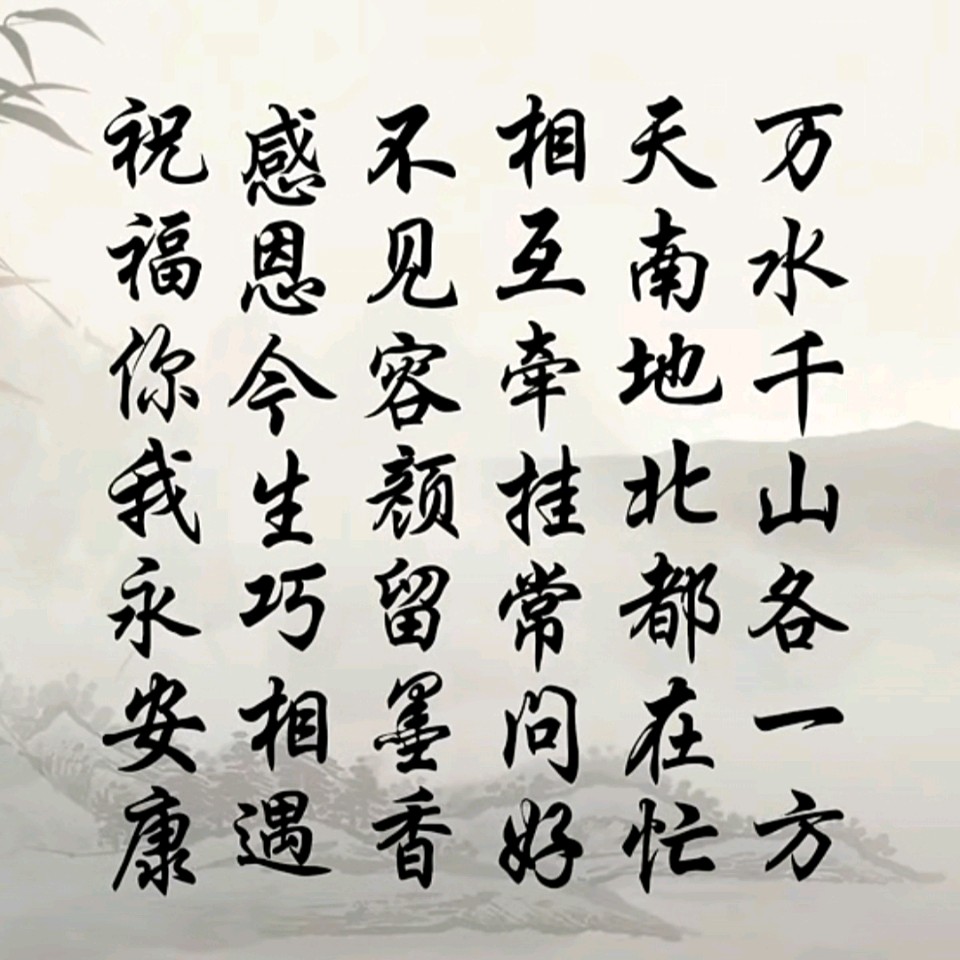 万水千山各一方
天南地北都在忙
相互牵挂常问好
不见容颜留墨香
感恩今生巧相遇
祝福你我永安康